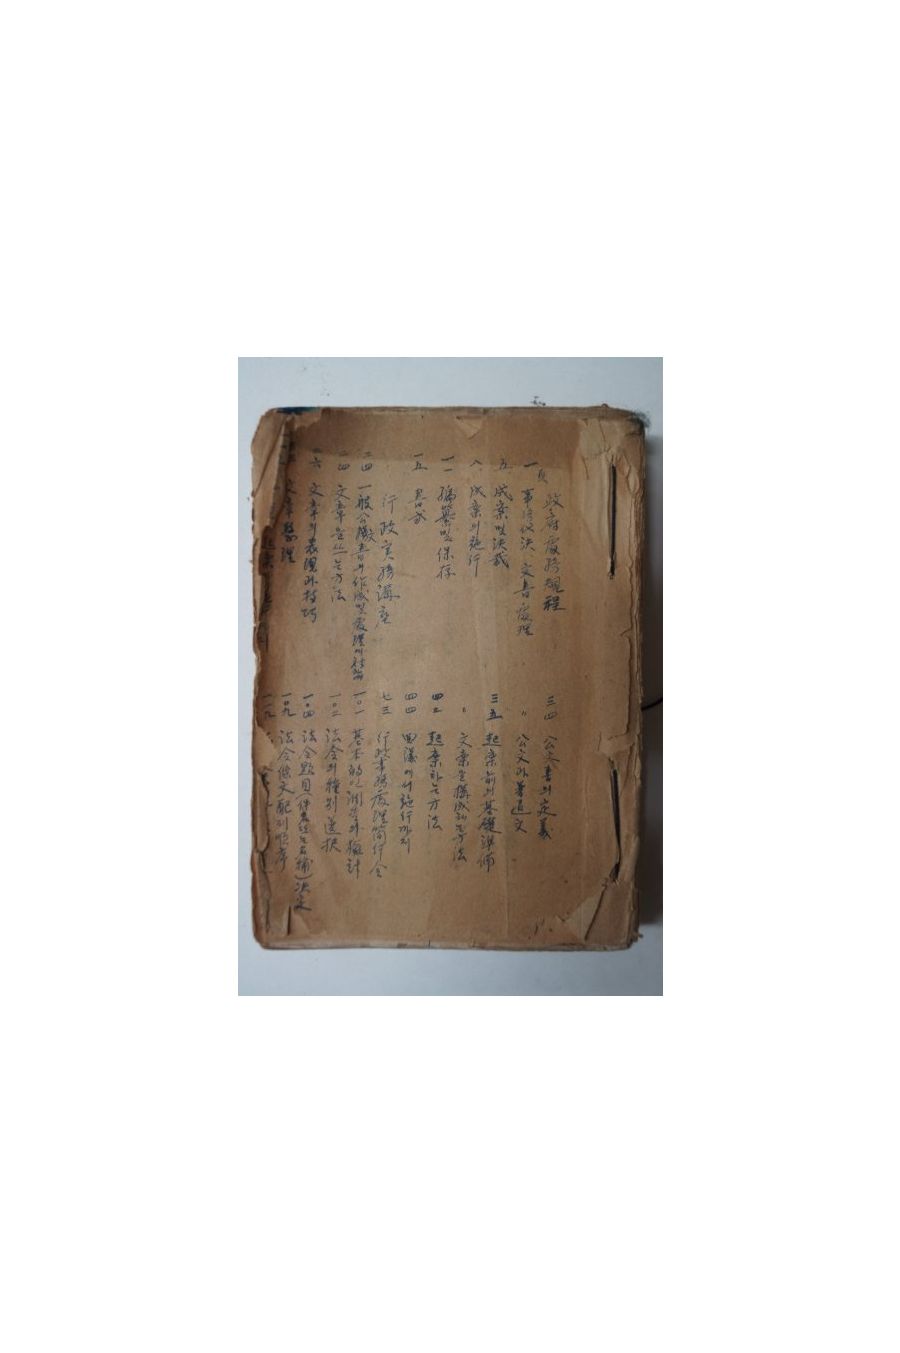 政府處務規程
一頁 事務代決 文書處理
五 成案및決裁
八 成案의施行
一一 編纂및保存
一五 書式
行政実務講座
二四 一般公議書의作成및處理에
二四 文章을쓰는方法
二六 文章의表現과技巧
文章整理
起案
三四 公文書의定義
〃 公文과普通文
三五 起案前의基礎準備
〃 文案을構成하는方法
四二 起案하는方法
四四 回議에서施行까지
七三 行政事務處理簡行令
一〇一 基本的인測面의檢討
一〇二 法令의種別選択
一〇四 法令題目(件名또는名稱)決定
一〇九 法令條文配列順序
一一九